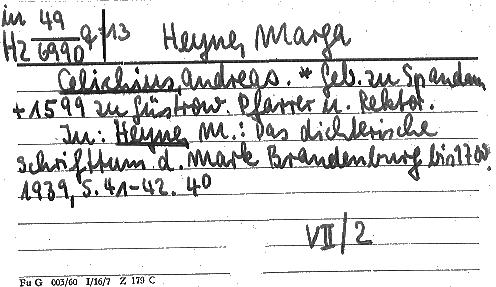 in 49
HZ 6990 q+13
Heyne, Marga
Celichius, Andreas. * Geb. zu Spandau,
+ 1599 zu Güstrow. Pfarrer u. Rektor.
In: Heyne, M.: Das dichterische
Schrifttum d. Mark Brandenburg bis 1700.
1939, S. 41-42. 4°
VII/2
Fu G 003/60 I/16/7 Z 179 C